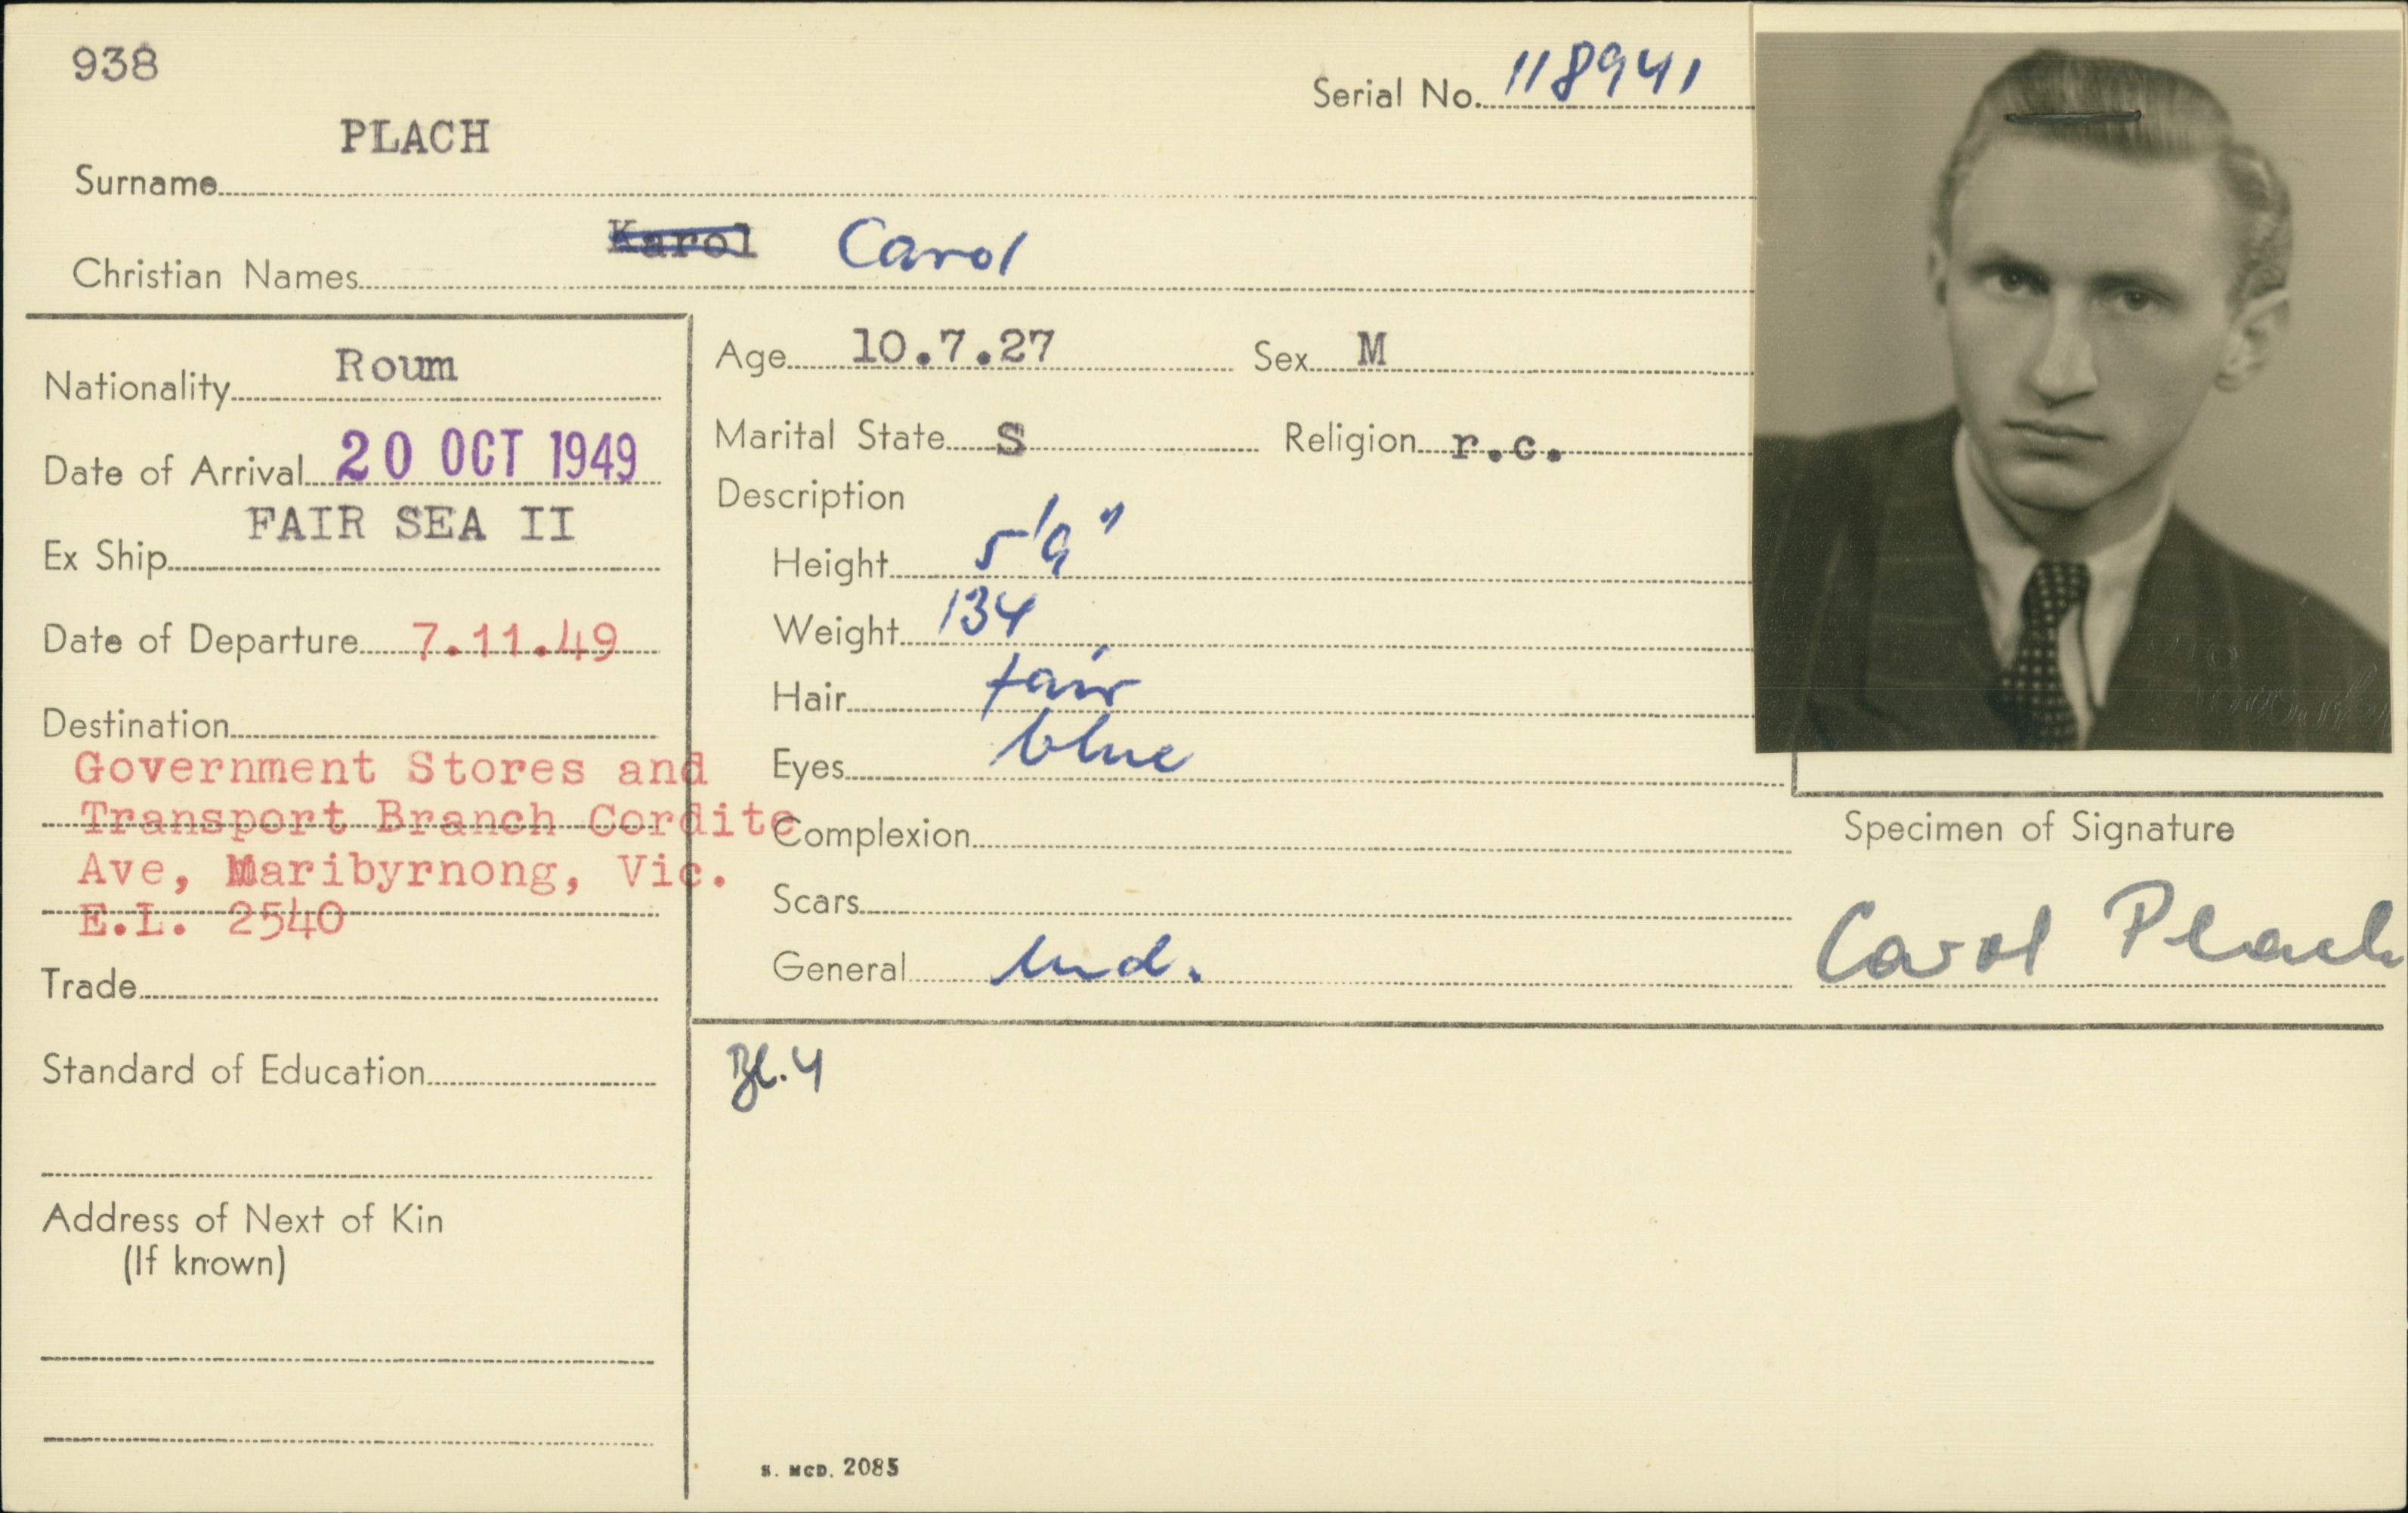 938
Serial No. 118941
PLACH
Surname
Karol Carol
Christian Names
Nationality Roum
Date of Arrival 20 OCT 1949
FAIR SEA II
Ex Ship
Date of Departure 7.11.49
Destination
Government Stores and
Transport Branch Cordite
Ave, Maribyrnong, Vic.
E.L. 2540
Trade
Standard of Education
Address of Next of Kin
(If known)
Age 10.7.27 Sex M
Marital State S Religion r.c.
Description
Height 5'9"
Weight 134
Hair fair
Eyes blue
Complexion
Scars
General
Specimen of Signature
Carol Plach
Bl. 4
S. MCD. 2085